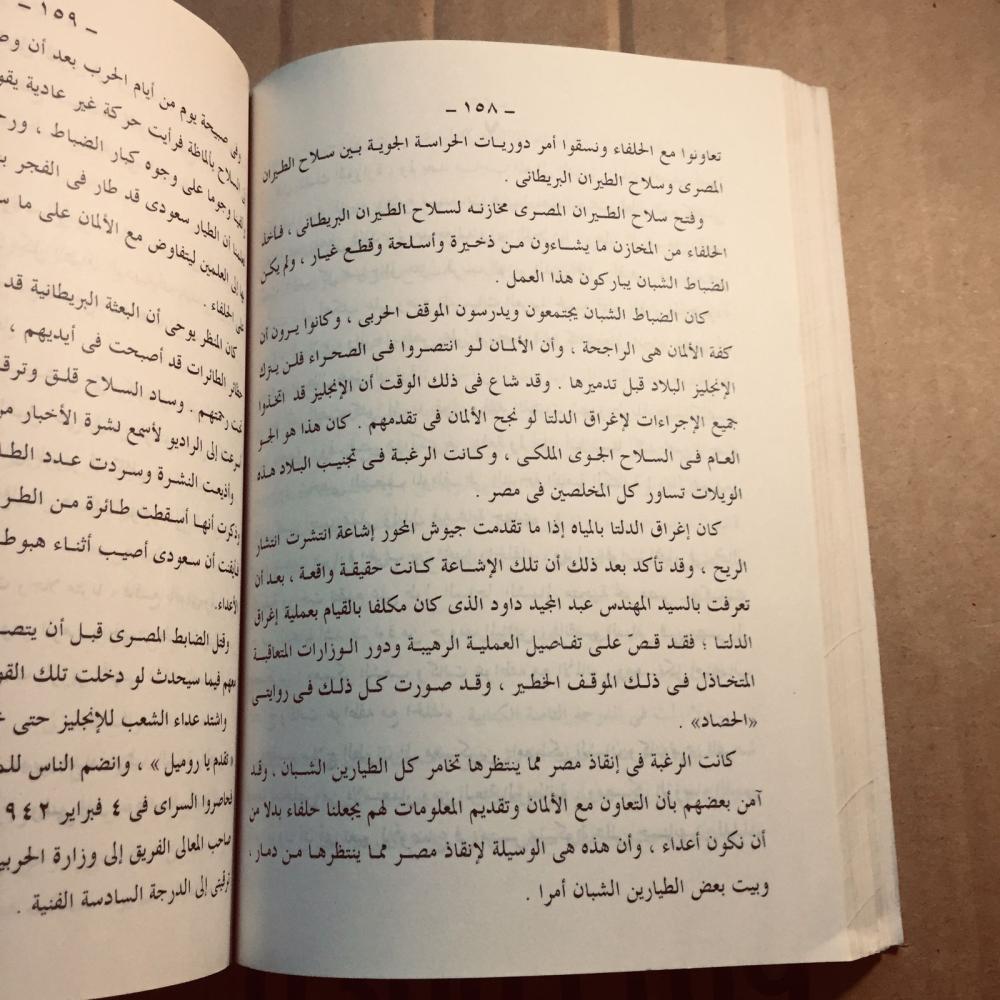 – ١٥٨ –
تعاونوا مع الحلفاء ونسقوا أمر دوريات الحراسة الجوية بين سلاح الطيران
المصرى وسلاح الطيران البريطانى .
وفتح سلاح الطيران المصرى مخازنه لسلاح الطيران البريطانى ، فأخذ
الحلفاء من المخازن ما يشاءون من ذخيرة وأسلحة وقطع غيار ، ولم يكن
الضباط الشبان يباركون هذا العمل .
كان الضباط الشبان يجتمعون ويدرسون الموقف الحربى ، وكانوا يرون أن
كفة الألمان هى الراجحة ، وأن الألمان لو انتصروا فى الصحراء فلن يترك
الإنجليز البلاد قبل تدميرها . وقد شاع فى ذلك الوقت أن الإنجليز قد اتخذوا
جميع الإجراءات لإغراق الدلتا لو نجح الألمان فى تقدمهم . كان هذا هو الجو
العام فى السلاح الجوى الملكى ، وكانت الرغبة فى تجنيب البلاد هذه
الويلات تساور كل المخلصين فى مصر .
كان إغراق الدلتا بالمياه إذا ما تقدمت جيوش المحور إشاعة انتشرت انتشار
الريح ، وقد تأكد بعد ذلك أن تلك الإشاعة كانت حقيقة واقعة ، بعد أن
تعرفت بالسيد المهندس عبد المجيد داود الذى كان مكلفا بالقيام بعملية إغراق
الدلتا ؛ فقد قص على تفاصيل العملية الرهيبة ودور الوزارات المتعاقبة
المتخاذل فى ذلك الموقف الخطير ، وقد صورت كل ذلك فى روايتى
«الحصاد» .
كانت الرغبة فى إنقاذ مصر مما ينتظرها تخامر كل الطيارين الشبان . وقد
آمن بعضهم بأن التعاون مع الألمان وتقديم المعلومات لهم يجعلنا حلفاء بدلا من
أن نكون أعداء ، وأن هذه هى الوسيلة لإنقاذ مصر مما ينتظرها من دمار ،
وبيت بعض الطيارين الشبان أمرا .
– ١٥٩ –
وفى صبيحة يوم من أيام الحرب بعد أن
السلاح بالماظة فرأيت حركة غير عادية
وجوما على وجوه كبار الضباط ،
أن الطيار سعودى قد طار فى الفجر
إلى العلمين ليتفاوض مع الألمان على ما
على الحلفاء .
كان المنظر يوحى أن البعثة البريطانية قد
الطائرات قد أصبحت فى أيديهم ،
تحت رحمتهم . وساد السلاح قلق
أسرعت إلى الراديو لأسمع نشرة الأخبار
وأذيعت النشرة وسردت عدد
وذكرت أنها أسقطت طائرة من
فأيقنت أن سعودى أصيب أثناء
الأعداء.
وقتل الضابط المصرى قبل أن
معهم فيما سيحدث لو دخلت تلك
واشتد عداء الشعب للإنجليز حتى
«تقدم يا روميل» ، وانضم الناس
فحاصروا السراى فى ٤ فبراير ١٩٤٢
صاحب المعالى الفريق إلى وزارة
ترقيتى إلى الدرجة السادسة الفنية .